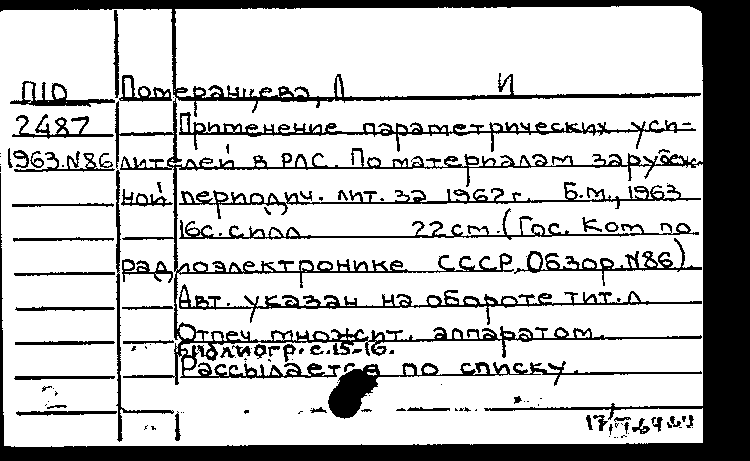 П10 Померанцева, Л И
2487 Применение параметрических уси-
1963.N86 лителей в РЛС. По материалам зарубеж-
ной периодич. лит. за 1962 г. Б.м., 1963
16с. с илл. 22 см. (Гос. Ком по
радиоэлектронике СССР. Обзор. N86)
Авт. указан на обороте тит. л.
Отпеч. множит. аппаратом.
Библиогр. с. 15-16.
Рассылается по списку.
2